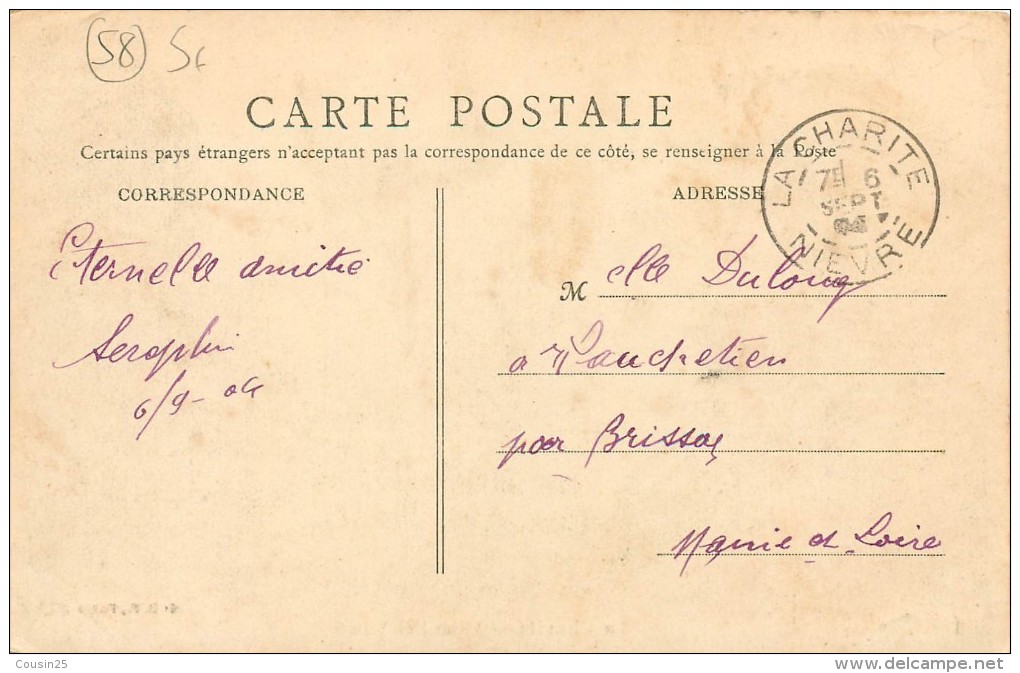 58
CARTE POSTALE
Certains pays étrangers n'acceptent pas la correspondance de ce côté, se renseigner à la Poste
LA CHARITE
7E 6
SEPT
04
NIEVRE
CORRESPONDANCE
ADRESSE
Eternelle amitié
Seraphin
6/9-04
M elle Dulong
a Vauchretien
par Brissac
Maine et Loire
Cousin25
http://www.delcampe.net